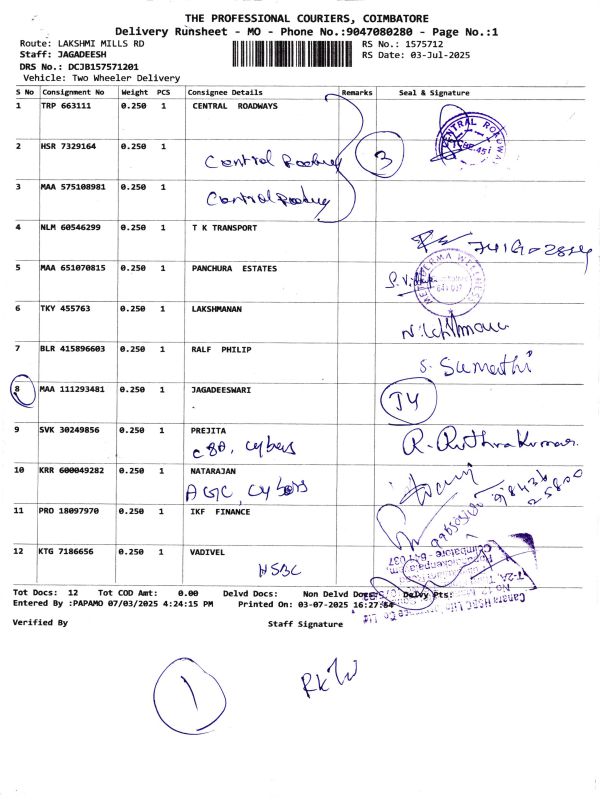 THE PROFESSIONAL COURIERS, COIMBATORE
Delivery Runsheet - MO - Phone No.:9047080280 - Page No.:1
Route: LAKSHMI MILLS RD RS No.: 1575712
Staff: JAGADEESH RS Date: 03-Jul-2025
DRS No.: DCJB157571201
Vehicle: Two Wheeler Delivery
S No Consignment No Weight PCS Consignee Details Remarks Seal & Signature
1 TRP 663111 0.250 1 CENTRAL ROADWAYS
2 HSR 7329164 0.250 1
Central 3
3 MAA 575108981 0.250 1
Central
4 NLM 60546299 0.250 1 T K TRANSPORT
5 MAA 651070815 0.250 1 PANCHURA ESTATES
6 TKY 455763 0.250 1 LAKSHMANAN
7 BLR 415896603 0.250 1 RALF PHILIP
S. Sumathi
8 MAA 111293481 0.250 1 JAGADEESWARI
J4
9 SVK 30249856 0.250 1 PREJITA
R. Ruthrakumar
10 KRR 600049282 0.250 1 NATARAJAN
11 PRO 18097970 0.250 1 IKF FINANCE
12 KTG 7186656 0.250 1 VADIVEL
HSBC
Tot Docs: 12 Tot COD Amt: 0.00 Delvd Docs: Non Delvd Docs: Delvy Pts:
Entered By :PAPAMO 07/03/2025 4:24:15 PM Printed On: 03-07-2025 16:27:54
Verified By Staff Signature
1